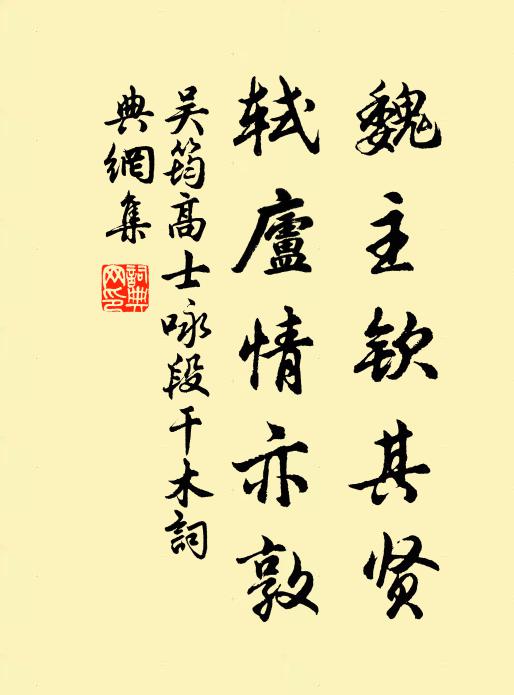 魏主钦其贤
轼廬情亦敦
吴筠高士咏段干木詞
典網集
詞典
网印